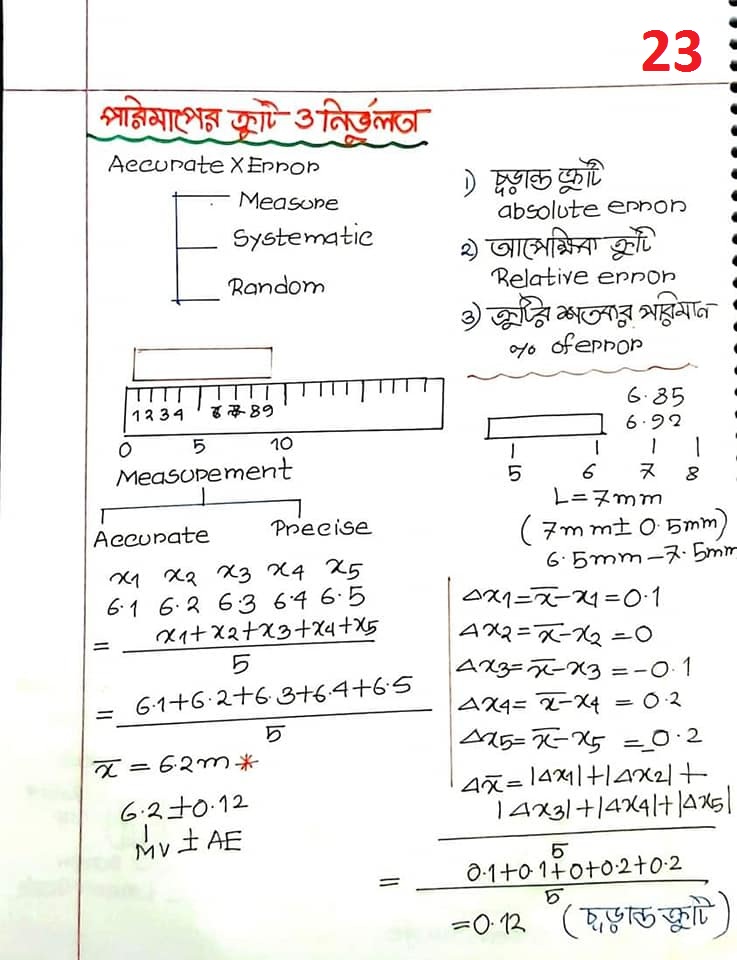 23
পরিমাপের ত্রুটি ও নির্ভুলতা
Accurate X Error
Measure
Systematic
Random
1) চূড়ান্ত ত্রুটি
absolute error
2) আপেক্ষিক ত্রুটি
Relative error
3) ত্রুটির শতকরা পরিমান
% of error
1 2 3 4 6 7 8 9
0 5 10
Measurement
Accurate Precise
6.85
6.92
5 6 7 8
L=7mm
(7mm± 0.5mm)
6.5mm-7.5mm
x1 x2 x3 x4 x5
6.1 6.2 6.3 6.4 6.5
= x1+x2+x3+x4+x5
5
= 6.1+6.2+6.3+6.4+6.5
5
x̅ = 6.2m *
6.2±0.12
MV ± AE
Δx1=x̅-x1=0.1
Δx2=x̅-x2=0
Δx3=x̅-x3=-0.1
Δx4=x̅-x4=0.2
Δx5=x̅-x5=-0.2
Δx̅=|Δx1|+|Δx2|+
|Δx3|+|Δx4|+|Δx5|
5
= 0.1+0.1+0+0.2+0.2
5
=0.12 (চূড়ান্ত ত্রুটি)